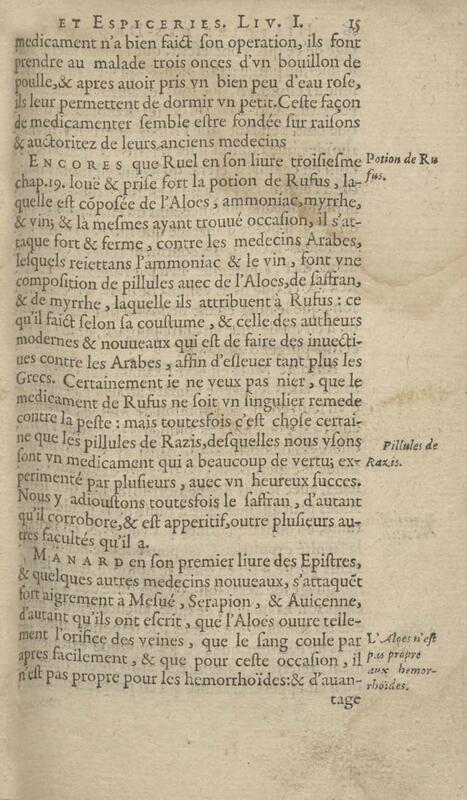 ET ESPICERIES. LIV. I. 15
medicament n'a bien faict ſon operation, ils font
prendre au malade trois onces d'vn bouillon de
poulle,& apres auoir pris vn bien peu d'eau roſe,
ils leur permettent de dormir vn petit.Ceſte façon
de medicamenter ſemble eſtre fondée ſur raiſons
& auctoritez de leurs anciens medecins
ENCORES que Ruel en ſon liure troiſieſme
Potion de Ru
fus.
chap.19. louë & priſe fort la potion de Rufus, la-
quelle eſt cõpoſée de l'Aloes, ammoniac,myrrhe,
& vin; & là meſmes ayant trouué occaſion, il s'at-
taque fort & ferme, contre les medecins Arabes,
leſquels reiettans l'ammoniac & le vin, font vne
compoſition de pillules auec de l'Aloes,de ſaffran,
& de myrrhe, laquelle ils attribuent à Rufus: ce
qu'il faict ſelon ſa couſtume, & celle des autheurs
modernes & nouueaux qui eſt de faire des inuecti-
ues contre les Arabes, affin d'eſleuer tant plus les
Grecs. Certainement ie ne veux pas nier, que le
medicament de Rufus ne ſoit vn ſingulier remede
contre la peſte: mais toutesfois c'eſt choſe certai-
ne que les pillules de Razis,deſquelles nous vſons
Pillules de
Razis.
ſont vn medicament qui a beaucoup de vertu; ex-
perimenté par pluſieurs, auec vn heureux ſucces.
Nous y adiouſtons toutesfois le ſaffran, d'autant
qu'il corrobore,& eſt apperitif,outre pluſieurs au-
tres facultés qu'il a.
MANARD en ſon premier liure des Epiſtres,
& quelques autres medecins nouueaux, s'attaquẽt
fort aigrement à Meſué, Serapion, & Auicenne,
d'autant qu'ils ont eſcrit, que l'Aloes ouure telle-
ment l'orifice des veines, que le ſang coule par
L'Aloes n'eſt
pas propre
aux hemor-
rhoïdes.
apres facilement, & que pour ceſte occaſion, il
n'eſt pas propre pour les hemorrhoïdes:& d'auan-
tage